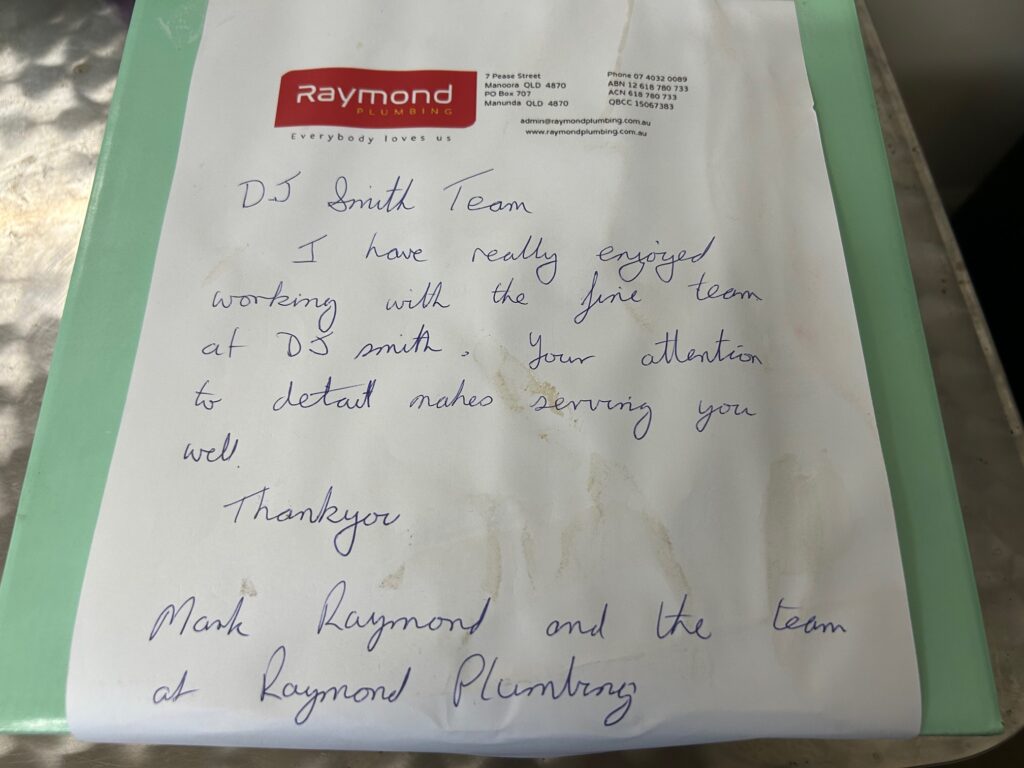 Raymond
PLUMBING
Everybody loves us
7 Pease Street
Manoora QLD 4870
PO Box 707
Manunda QLD 4870
Phone 07 4032 0089
ABN 12 618 780 733
ACN 618 780 733
QBCC 15067383
admin@raymondplumbing.com.au
www.raymondplumbing.com.au
DJ Smith Team
I have really enjoyed
working with the fine team
at DJ smith. Your attention
to detail makes serving you
well.
Thankyou
Mark Raymond and the team
at Raymond Plumbing